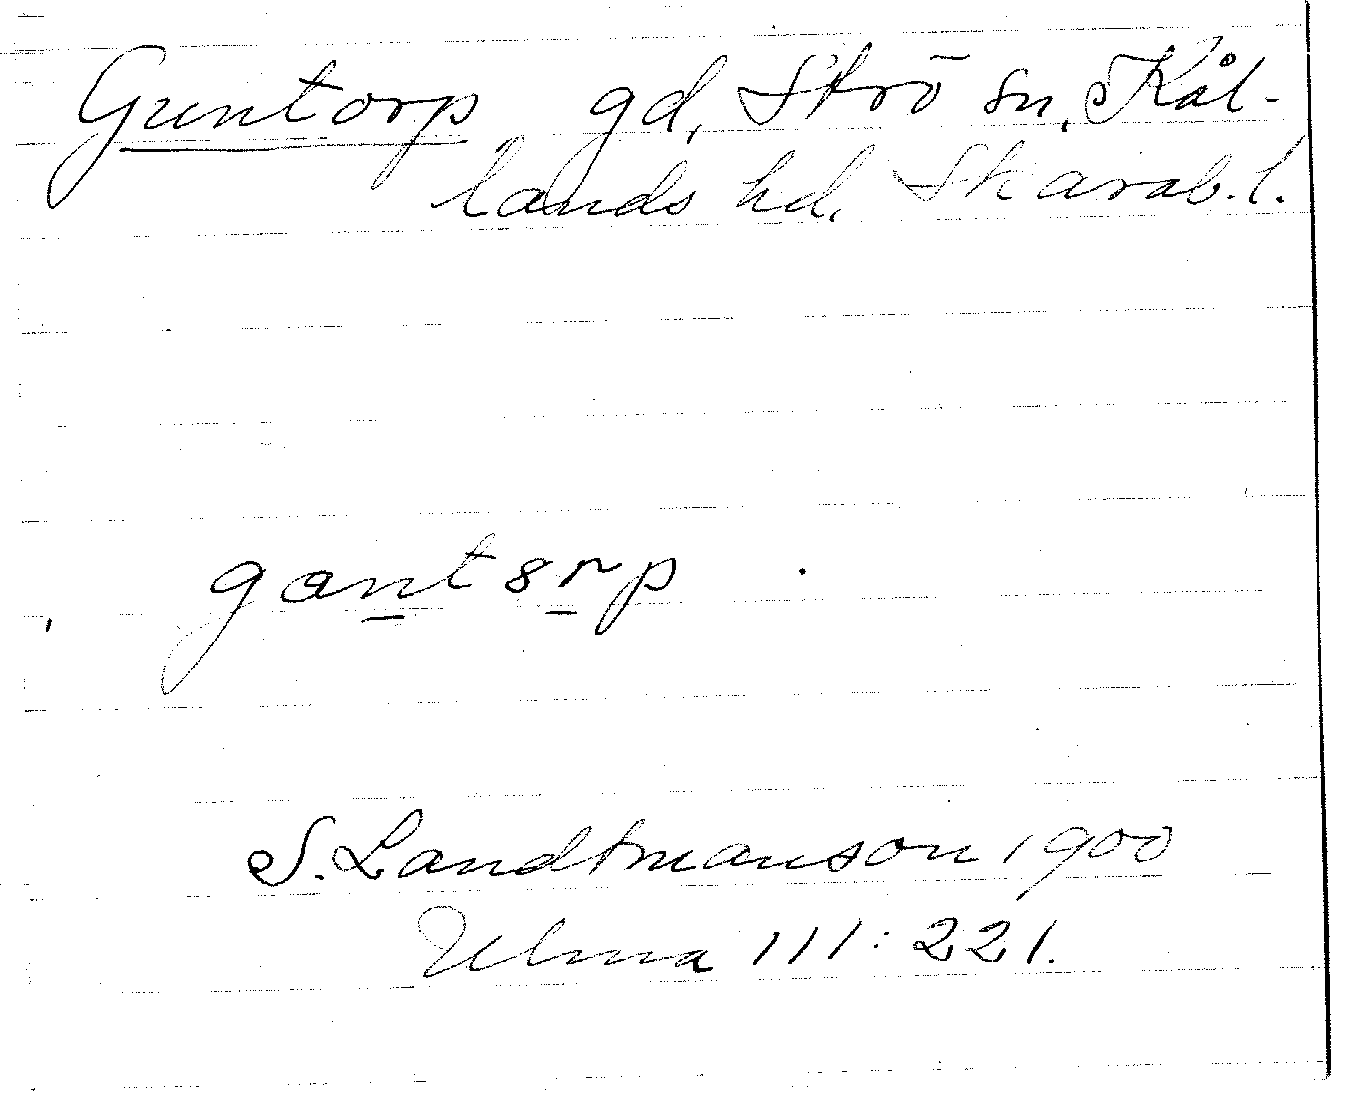 Guntorp gd, Strö sn, Kål-
lands hd. Skarab. l.
gant8rp
S. Landtmanson 1900
Ulma 111:221.